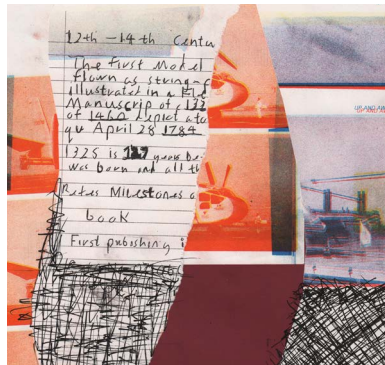 12th - 14th Centu
The First Model
flown as string-
illustrated in a
Manuscrip of 132
of 1460 depict a to
April 28 1784
1325 is 127 years be
was born and all th
Milestones o
book
First pubishing
UP AND AW